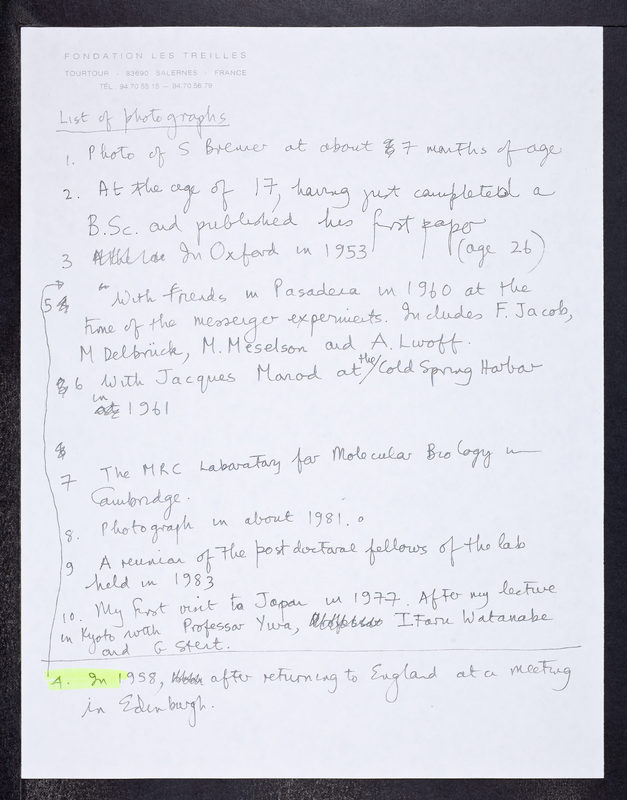 FONDATION LES TREILLES
TOURTOUR - 83690 SALERNES - FRANCE
TÉL. 94.70.55.15 — 94.70.56.79
List of photographs
1. Photo of S Brenner at about 7 months of age
2. At the age of 17, having just completed a
B.Sc. and published his first paper
3 In Oxford in 1953 (age 26)
5 With friends in Pasadena in 1960 at the
time of the messenger experiments. Includes F. Jacob,
M Delbrück, M. Meselson and A. Lwoff.
6 With Jacques Monod at the Cold Spring Harbor
in 1961
7 The MRC Laboratory for Molecular Biology in
Cambridge.
8. Photograph in about 1981.
9 A reunion of the postdoctoral fellows of the lab
held in 1983
10. My first visit to Japan in 1977. After my lecture
in Kyoto with Professor Yura, Itaru Watanabe
and G Stent.
4. In 1958, after returning to England at a meeting
in Edinburgh.